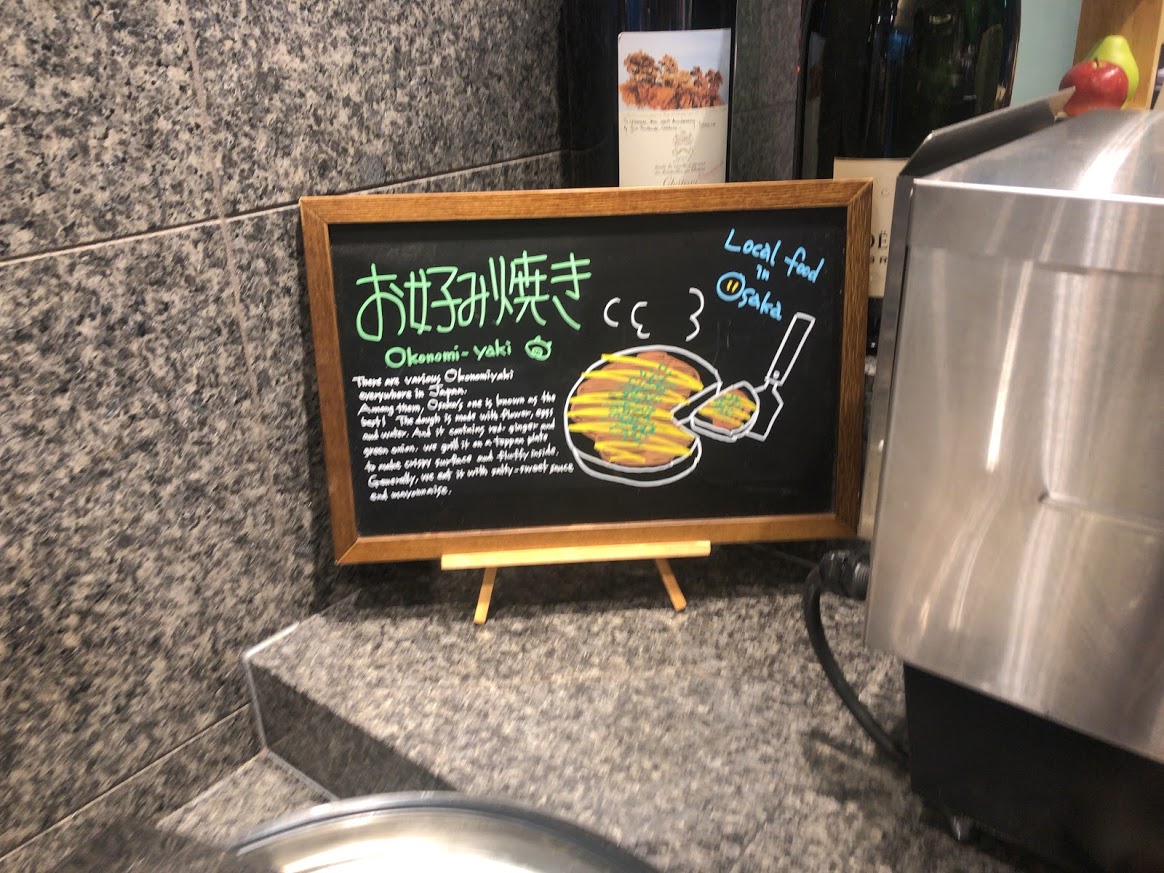 お好み焼き
Okonomi-yaki
There are various Okonomiyaki
everywhere in Japan.
Among them, Osaka's one is known as the
best! The dough is made with flower, eggs
and water. And it contains red ginger and
green onion. we grill it on a teppan plate
to make crispy surface and fluffy inside.
Generally, we eat it with salty-sweet sauce
and mayonnaise.
Local food
in
Osaka